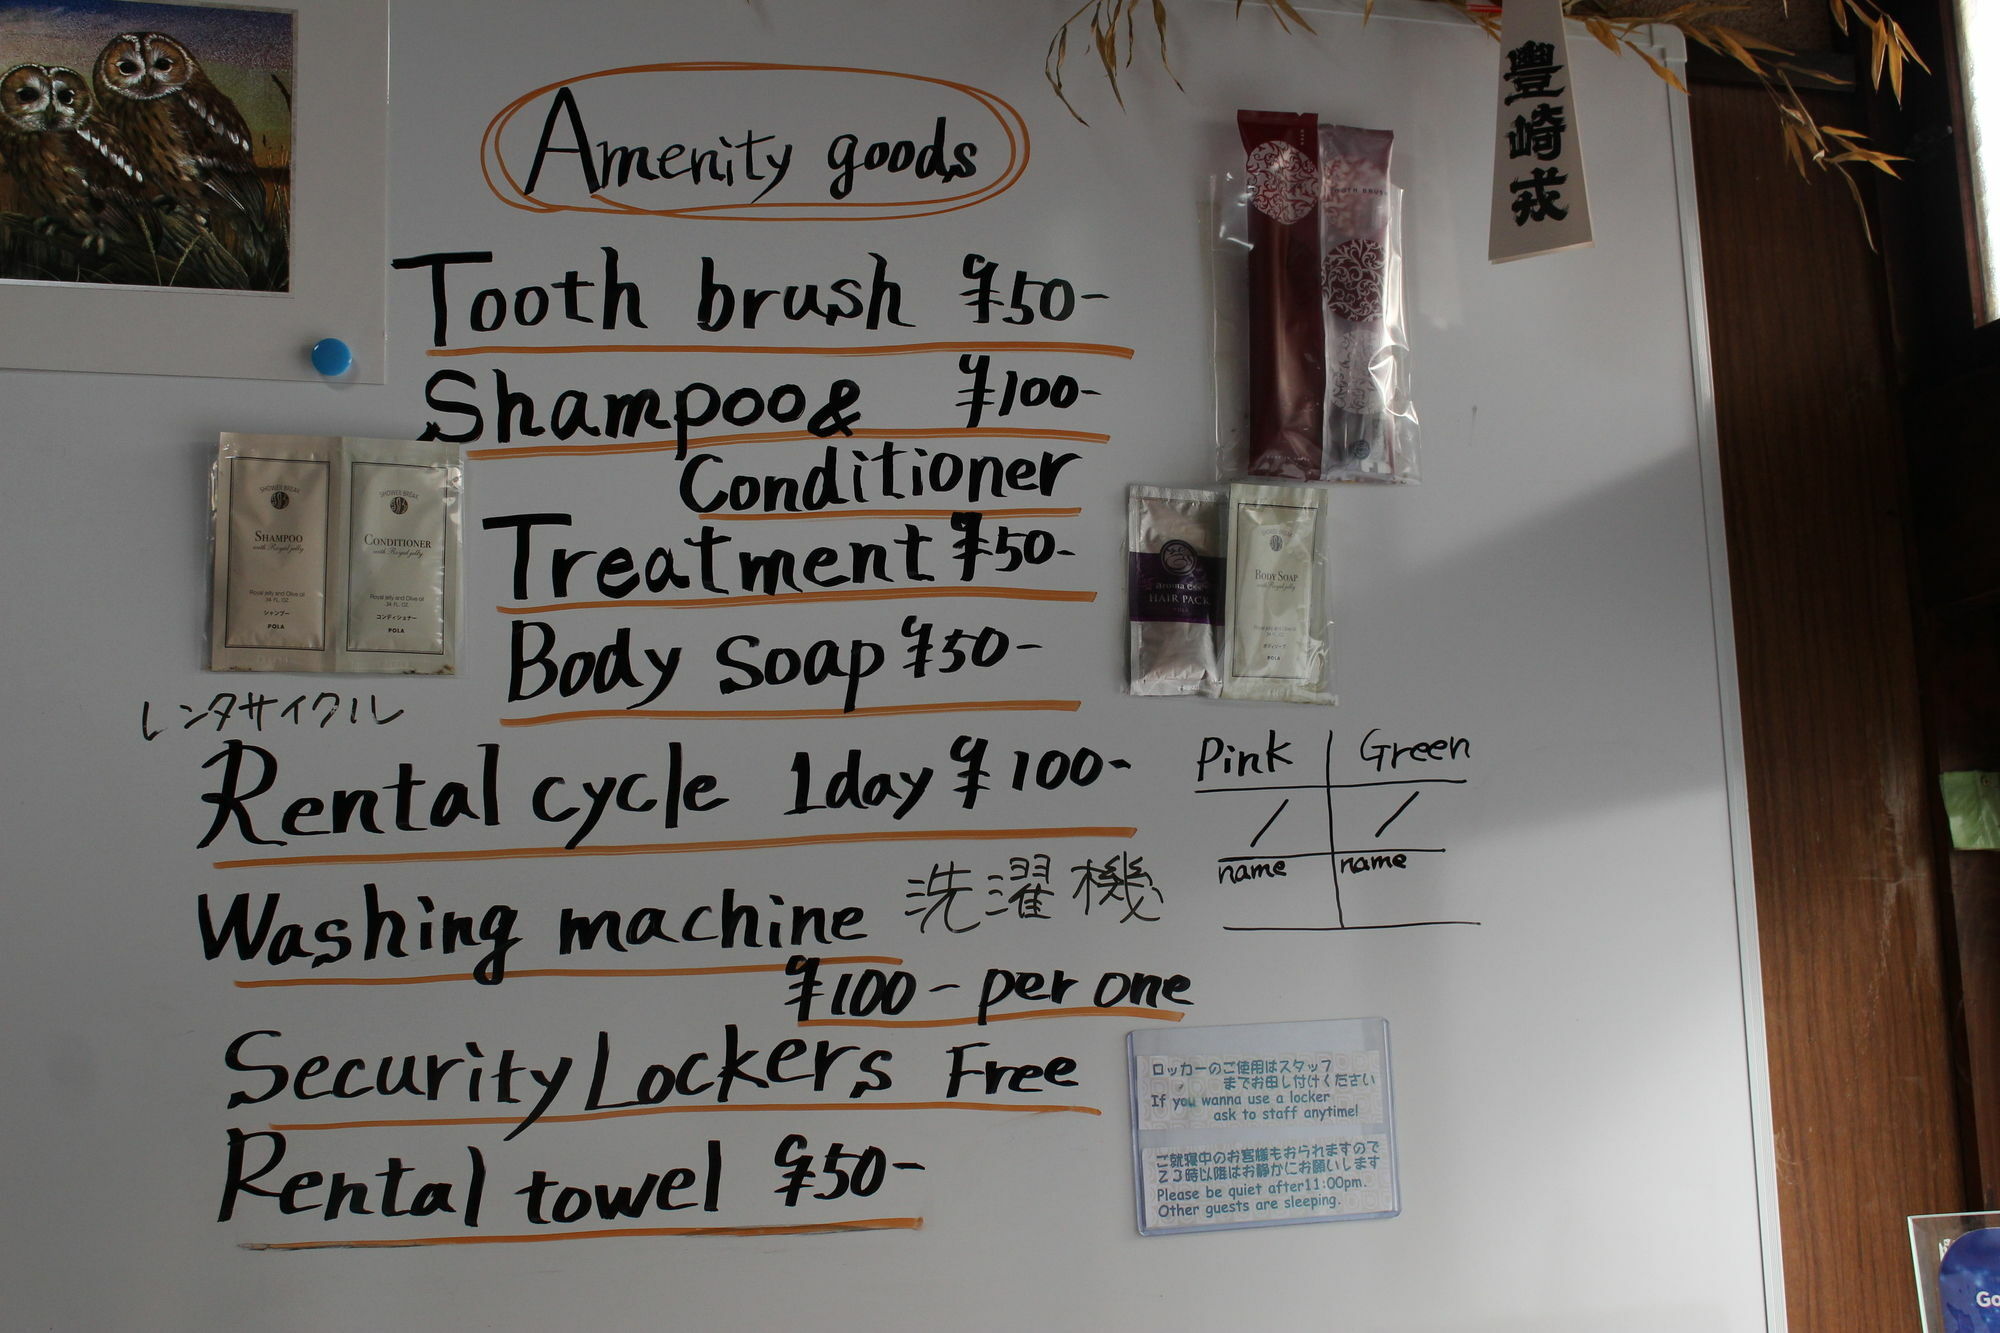 豊崎戎
Amenity goods
Tooth brush ¥50-
Shampoo& ¥100-
Conditioner
Treatment ¥50-
Body Soap ¥50-
レンタサイクル
Rental cycle 1day ¥100-
Washing machine 洗濯機
¥100- per one
Security Lockers Free
Rental towel ¥50-
Pink Green
/ /
name name
TOOTH BRUSH
SHOWER BREAK SHOWER BREAK
SHAMPOO CONDITIONER
with Royal jelly with Royal jelly
Royal jelly and Olive oil Royal jelly and Olive oil
34 FL. OZ. 34 FL. OZ.
シャンプー コンディショナー
POLA POLA
HAIR PACK
POLA
SHOWER BREAK
BODY SOAP
with Royal jelly
Royal jelly and Olive oil
34 FL. OZ.
ボディソープ
POLA
ロッカーのご使用はスタッフ
までお申し付けください
If you wanna use a locker
ask to staff anytime!
ご就寝中のお客様もおられますので
23時以降はお静かにお願いします
Please be quiet after11:00pm.
Other guests are sleeping.
Go